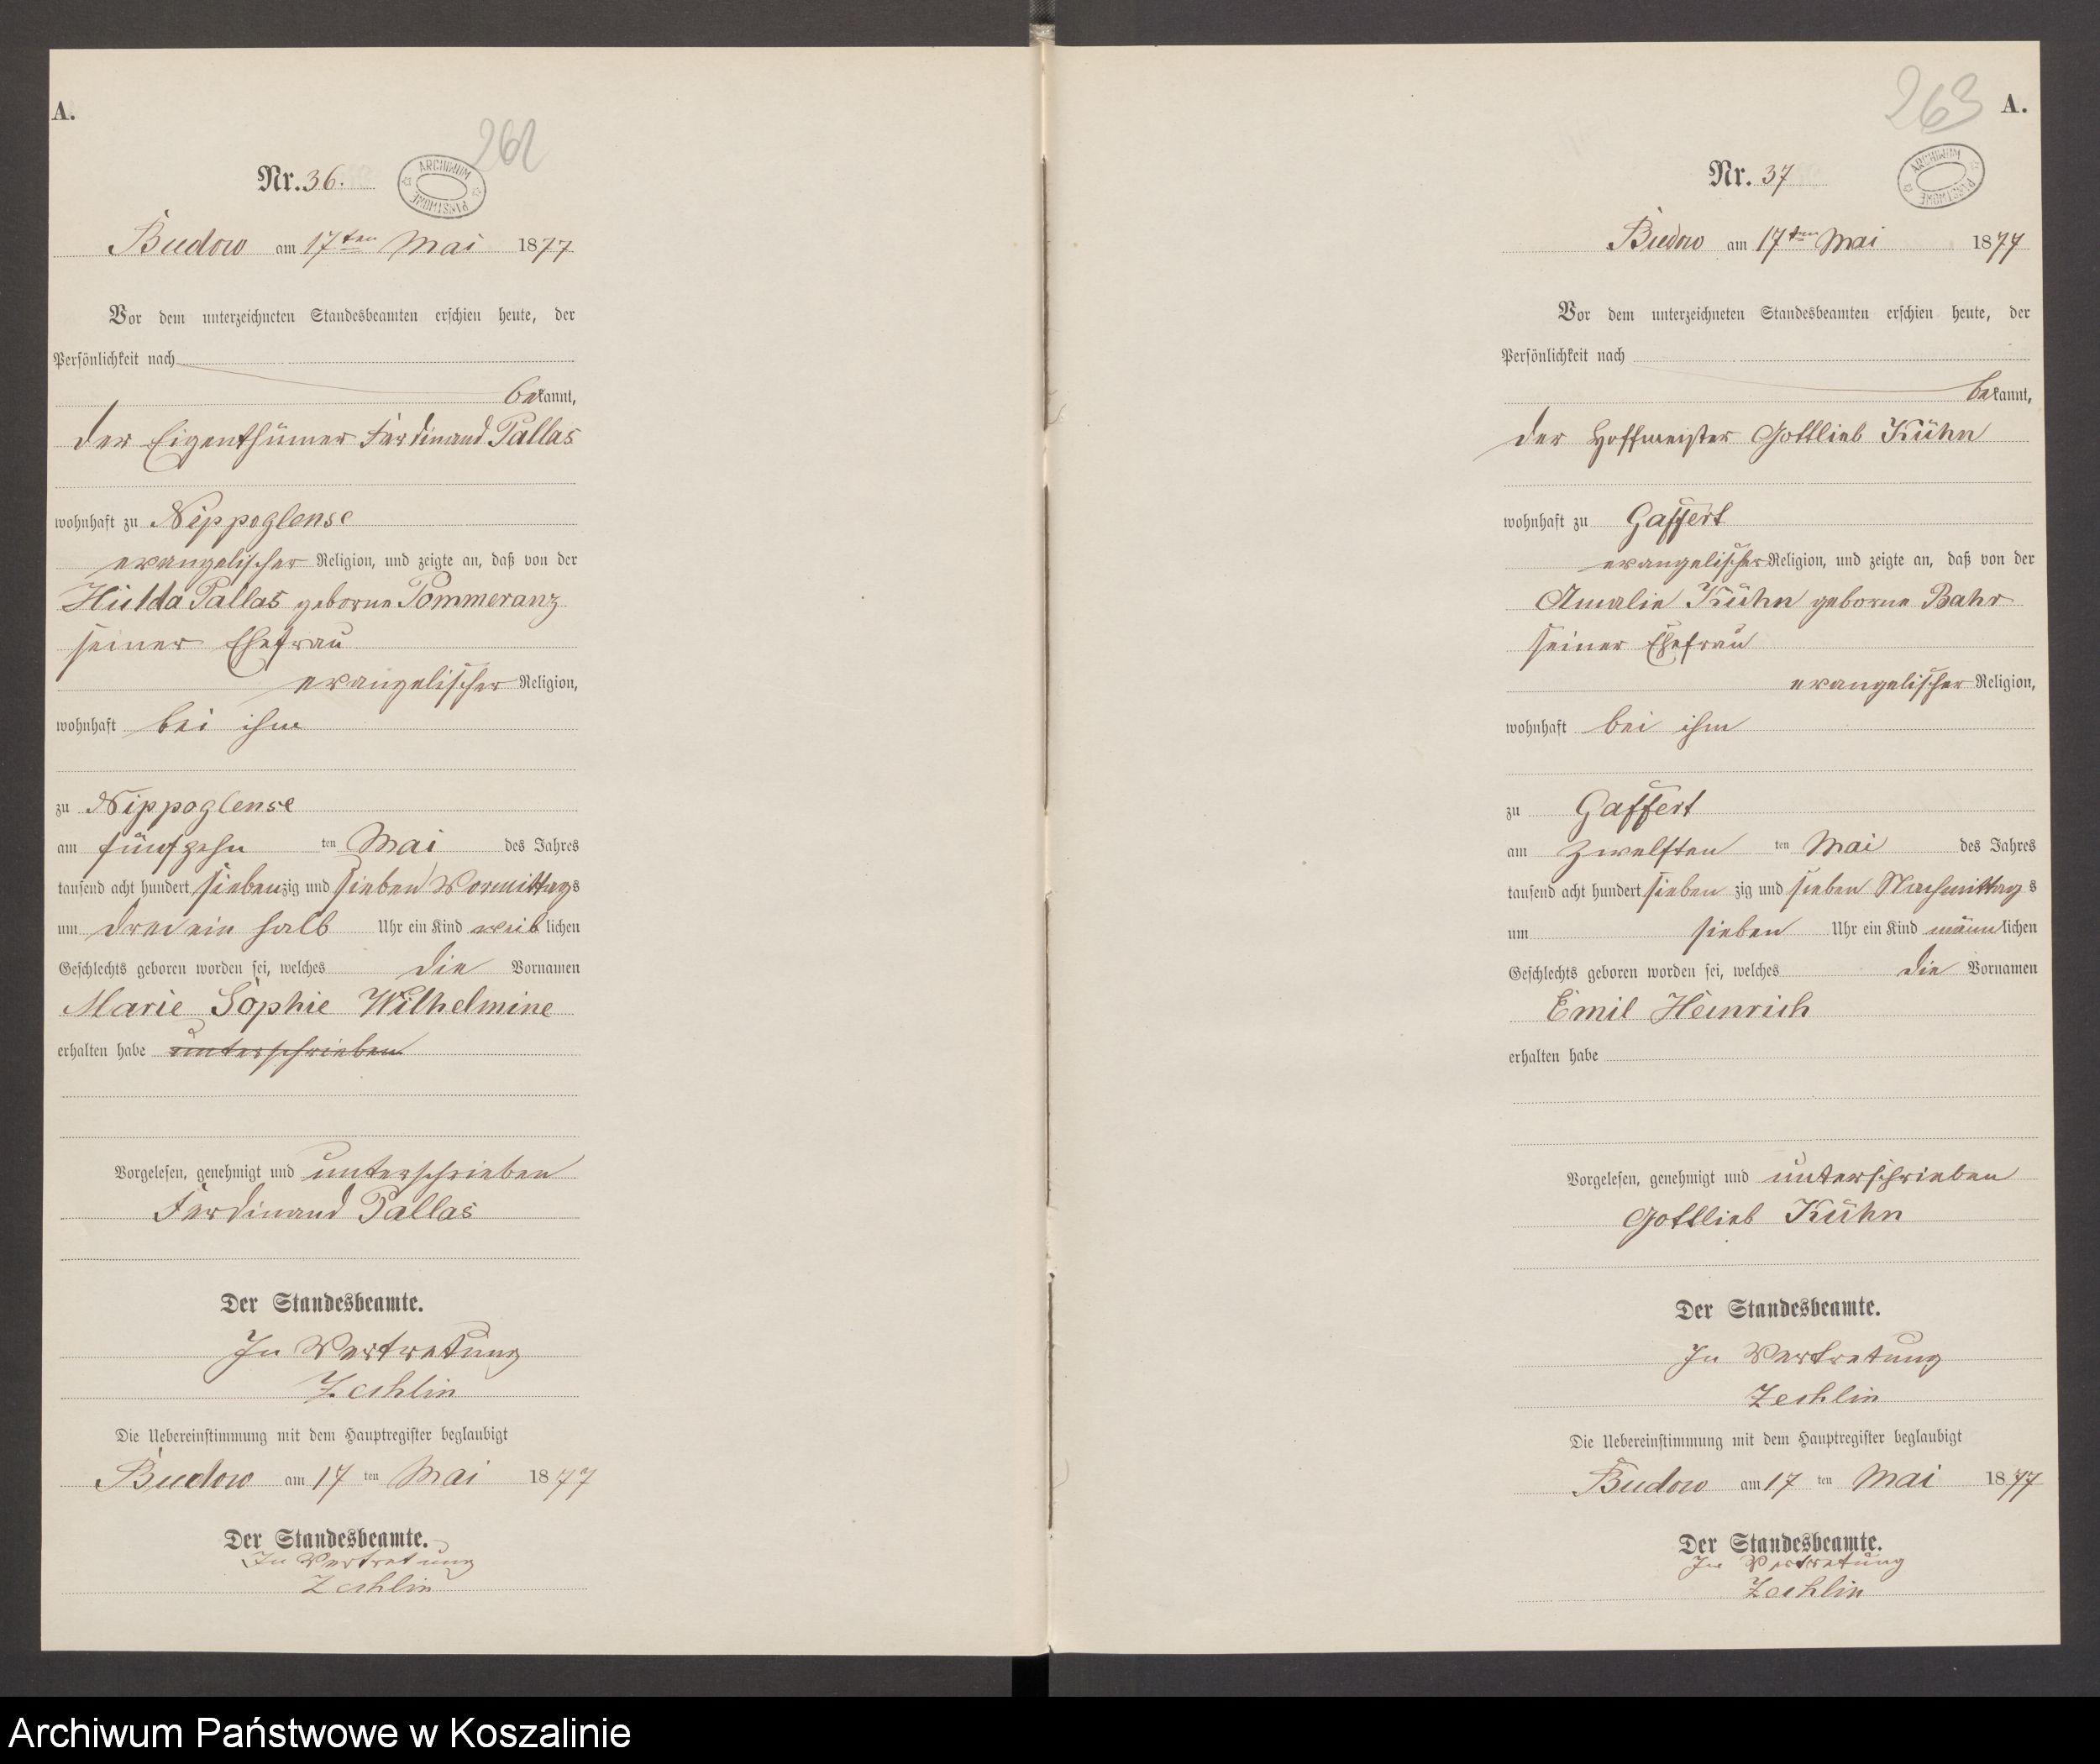 A.
262
Nr. 36.
ARCHIWUM PAŃSTWOWE
Budow am 17ten Mai 1877
Vor dem unterzeichneten Standesbeamten erschien heute, der
Persönlichkeit nach
bekannt,
der Eigenthümer Ferdinand Pallas
wohnhaft zu Nippoglense
evangelischer Religion, und zeigte an, daß von der
Hulda Pallas geborne Pommeranz
seiner Ehefrau
evangelischer Religion,
wohnhaft bei ihm
zu Nippoglense
am fünfzehn ten Mai des Jahres
tausend acht hundert siebenzig und sieben Vormittags
um drei ein halb Uhr ein Kind weiblichen
Geschlechts geboren worden sei, welches die Vornamen
Marie Sophie Wilhelmine
erhalten habe unterschrieben
Vorgelesen, genehmigt und unterschrieben
Ferdinand Pallas
Der Standesbeamte.
In Vertretung
Zechlin
Die Uebereinstimmung mit dem Hauptregister beglaubigt
Budow am 17 ten Mai 1877
Der Standesbeamte.
In Vertretung
Zechlin
263
A.
Nr. 37
ARCHIWUM PAŃSTWOWE
Budow am 17ten Mai 1877
Vor dem unterzeichneten Standesbeamten erschien heute, der
Persönlichkeit nach
bekannt,
der Hoffmeister Gottlieb Kühn
wohnhaft zu Gaffert
evangelischer Religion, und zeigte an, daß von der
Amalie Kühn geborne Bahr
seiner Ehefrau
evangelischer Religion,
wohnhaft bei ihm
zu Gaffert
am zwelften ten Mai des Jahres
tausend acht hundert sieben zig und sieben Nachmittags
um sieben Uhr ein Kind männlichen
Geschlechts geboren worden sei, welches die Vornamen
Emil Heinrich
erhalten habe
Vorgelesen, genehmigt und unterschrieben
Gottlieb Kühn
Der Standesbeamte.
In Vertretung
Zechlin
Die Uebereinstimmung mit dem Hauptregister beglaubigt
Budow am 17 ten Mai 1877
Der Standesbeamte.
In Vertretung
Zechlin
Archiwum Państwowe w Koszalinie